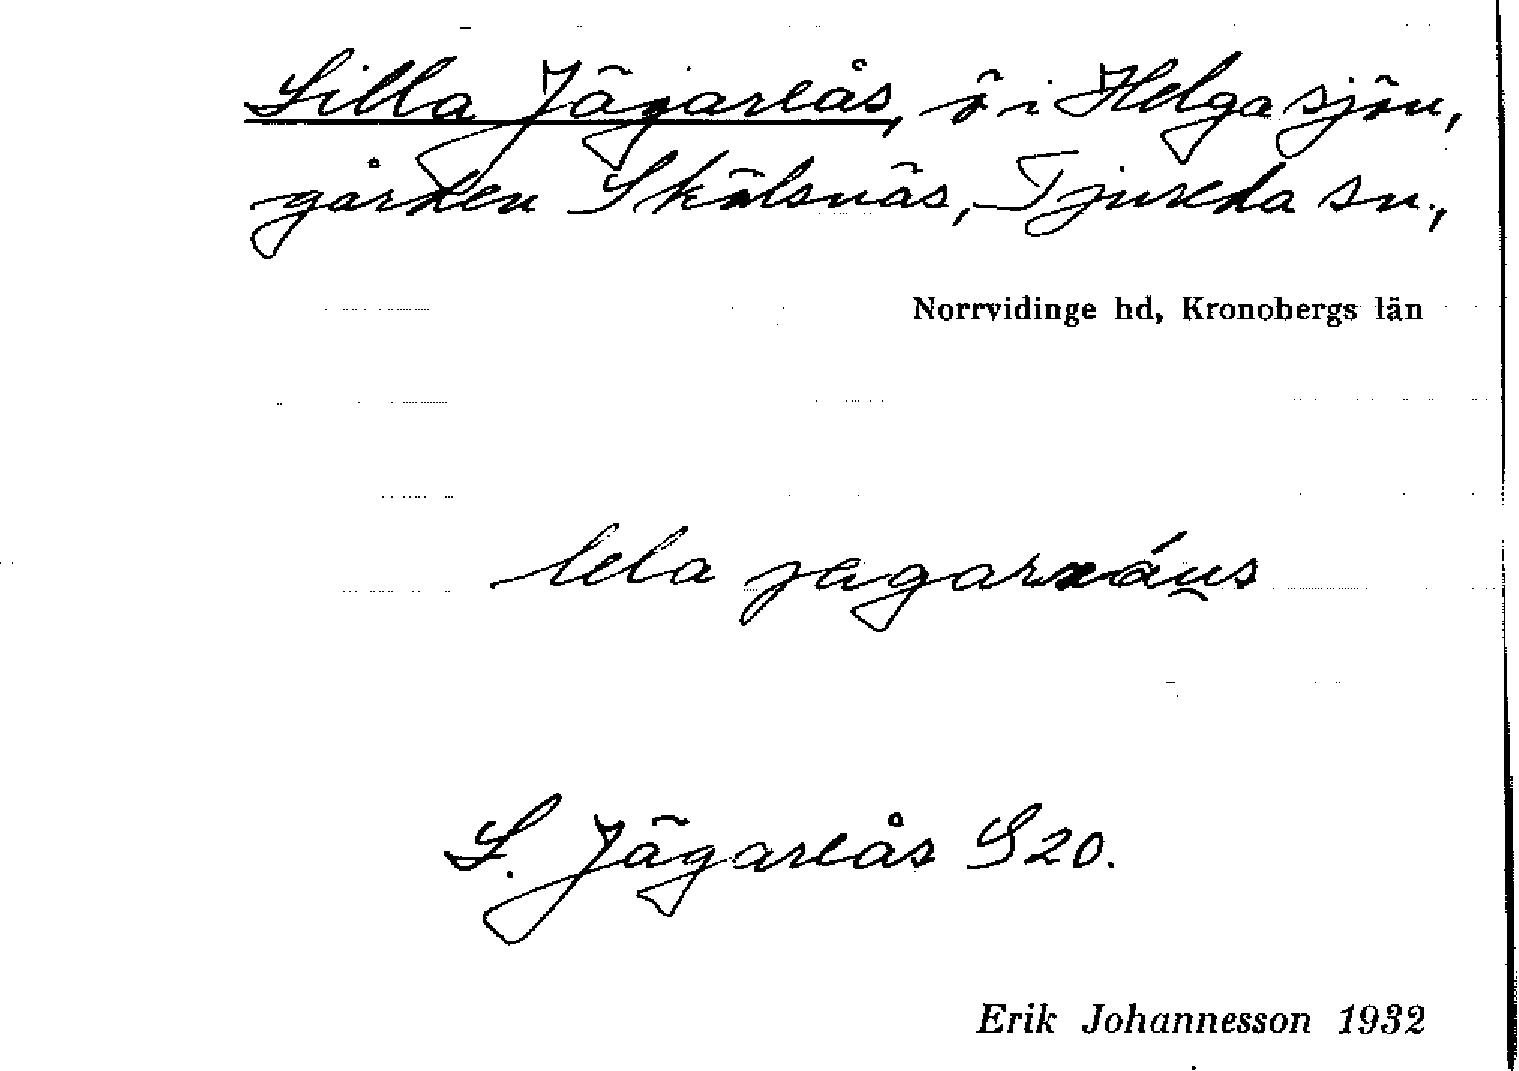 Lilla Jägareås, ö i Helgasjön,
gården Skälsnäs, Tjureda sn.,
Norrvidinge hd, Kronobergs län
lela
L. Jägareås S20.
Erik Johannesson 1932